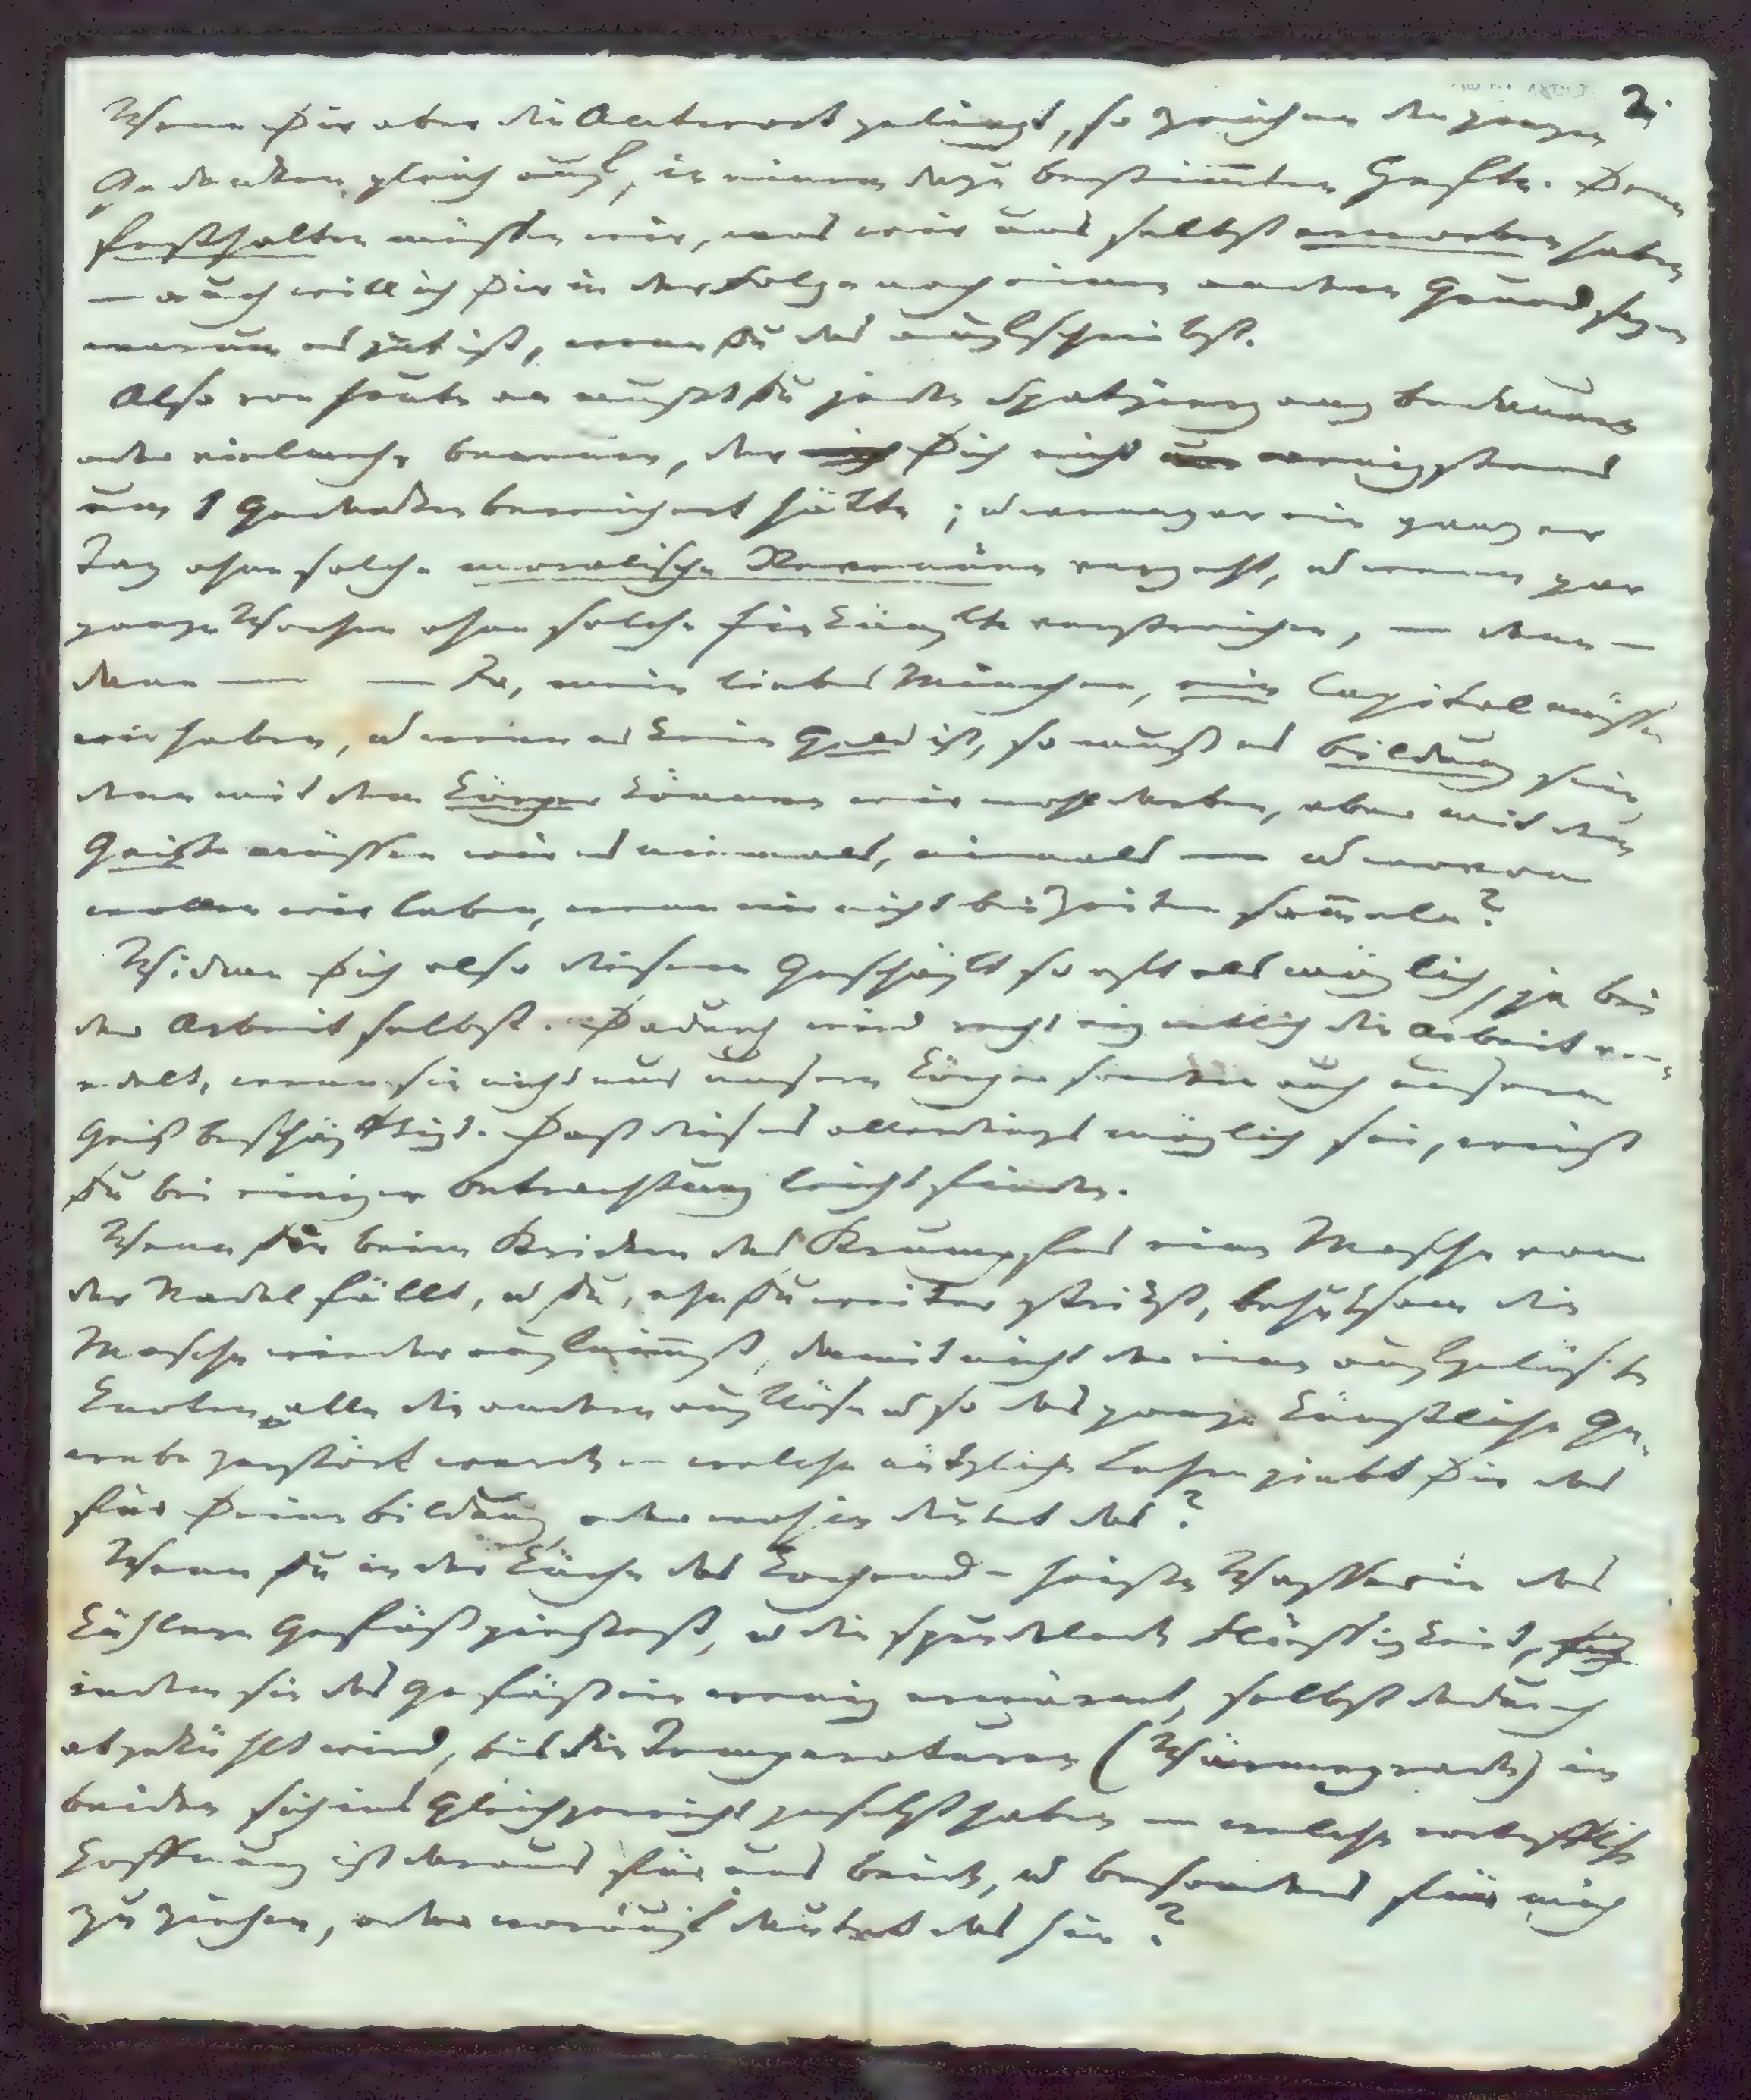 2.
Wenn Dir aber die Antwort gelingt, so zeichne den ganzen
Gedanken gleich auf, in einem dazu bestimmten Hefte. Denn
festhalten müssen wir, was wir uns selbst erworben haben
— auch will ich Dir in der Folge noch einen andern Grund sagen
warum es gut ist, wenn Du das aufschreibst.
Also von heute an mußt Du jeden Spatziergang bedauern
oder vielmehr bereuen, der Dich nicht wenigstens
um 1 Gedanken bereichert hätte; u wenn gar ein ganzer
Tag ohne solche moralische Revenüen vergeht, u wenn gar
ganze Wochen ohne solche Einkünfte verstreichen, — dann —
dann — — Ja, mein liebes Minchen, ein Capital müssen
wir haben, u wenn es kein Geld ist, so muß es Bildung sein
denn mit dem Körper können wir wohl darben, aber mit dem
Geiste müssen wir es niemals, niemals — u wovon
wollen wir leben, wenn wir nicht bei Zeiten sammeln?
Widme Dich also diesem Geschäft so oft als möglich, ja bei
der Arbeit selbst. Dadurch wird recht eigentlich die Arbeit ver-
edelt, wenn sie nicht nur unsern Körper sondern auch unsern
Geist beschäfftigt. Daß dieses allerdings möglich sei, wirst
Du bei einiger Betrachtung leicht finden.
Wenn Dir beim Stricken des Strumpfes eine Masche von
der Nadel fällt, u Du, ehe Du weiter strickst, behutsam die
Masche wieder aufnimmst, damit nicht der eine aufgelös'te
Knoten alle die andern auflöse u so das ganze künstliche Ge-
webe zerstört werde — welche nützliche Lehre giebt Dir das
für Deine Bildung, oder wohin deutet das?
Wenn Du in der Küche das kochend-heiße Wasser in das
kühlere Gefäß gießest, u die sprudelnde Flüssigkeit,
indem sie das Gefäß ein wenig erwärmt, selbst dadurch
abgekühlt wird, bis die Temperaturen (Wärmegrade) in
beiden sich ins Gleichgewicht gesetzt haben — welche vortreffliche
Hoffnung ist daraus für uns beide, u besonders für mich
zu ziehen, oder worauf deutet das hin?